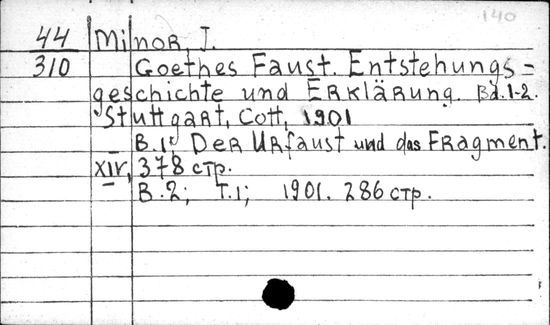 140
44 Minor, J.
310 Goethes Faust. Entstehungs=
geschichte und Erklärung. Bd. 1-2.
Stuttgart, Cott, 1901
B.1: Der Urfaust und das Fragment.
XIV, 378 стр.
B.2; T.1; 1901. 286 стр.